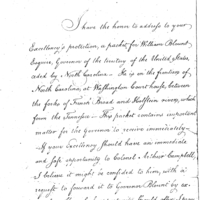 I have the honor to address to your
Excellency's protection, a packet for William Blount
Esquire, Governor of the territory of the United States,
ceded by North Carolina — He is on the frontiers of
North Carolina, at Washington Court house, between
the forks of French Broad and Holstein rivers, which
form the Tennessee — This packet contains important
matter for the Governor to receive immediately —
If your Excellency should have an immediate
and safe opportunity to Colonel Arthur Campbell,
I believe it might be confided to him, with a
request to forward it to Governor Blount by ex-